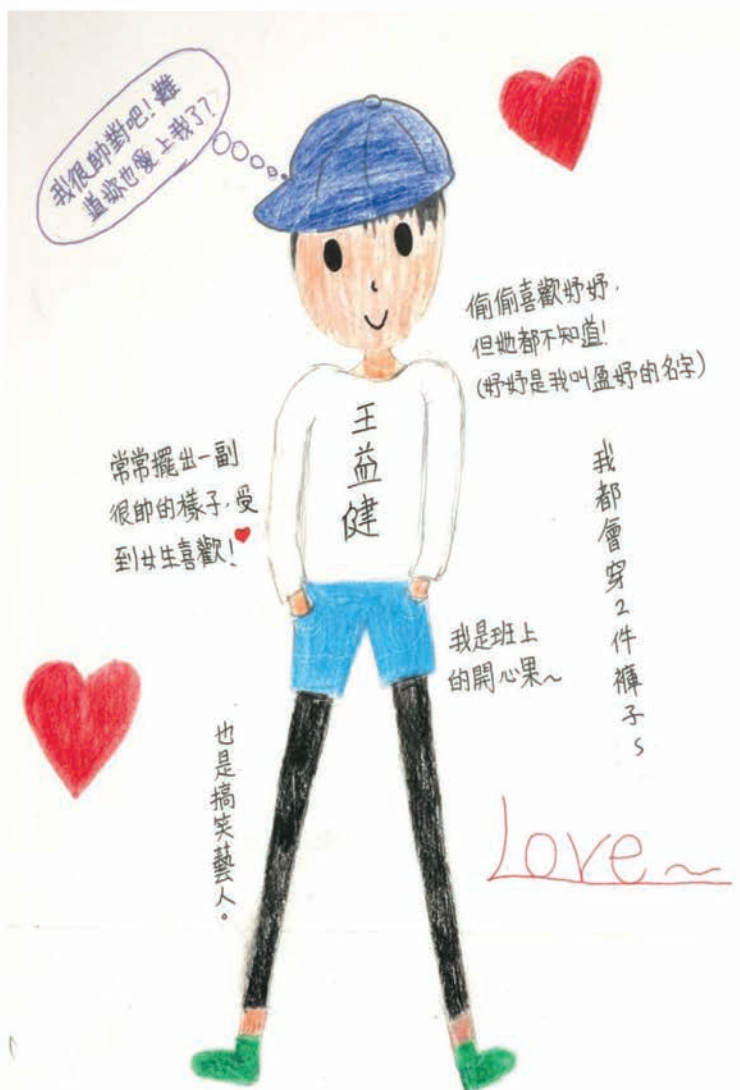 我很帥對吧!難
道妳也愛上我了?
偷偷喜歡妤妤,
但她都不知道!
(妤妤是我叫盈妤的名字)
王益健
常常擺出一副
很帥的樣子,受
到女生喜歡!
我都會穿2件褲子~
我是班上
的開心果~
也是搞笑藝人。
Love~